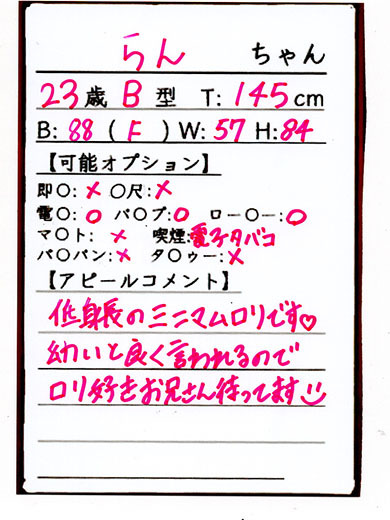 らん ちゃん
23歳 B 型 T: 145cm
B: 88 ( F ) W: 57 H: 84
【可能オプション】
即〇: × 〇尺: ×
電〇: 〇 バ〇ブ: 〇 ロー〇ー: 〇
マ〇ト: × 喫煙: 電子タバコ
パ〇パン: × タ〇ゥー: ×
【アピールコメント】
低身長のミニマムロリです♡
幼いと良く言われるので
ロリ好きお兄さん待ってます